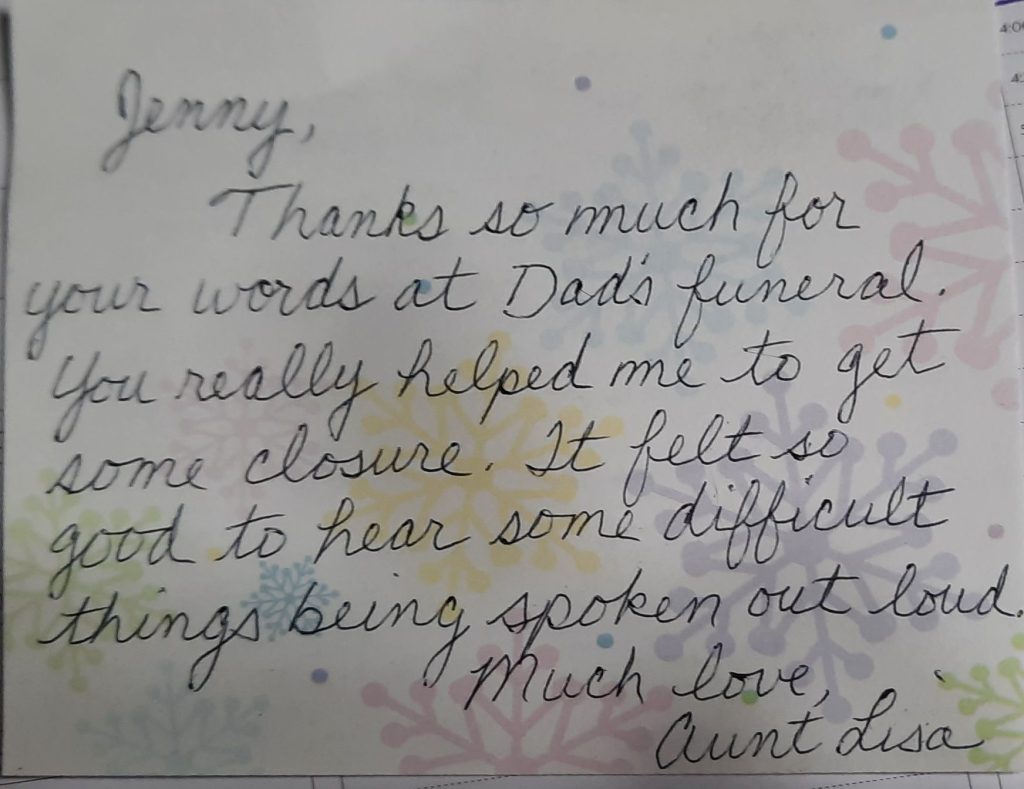 Jenny,
Thanks so much for
your words at Dad's funeral.
You really helped me to get
some closure. It felt so
good to hear some difficult
things being spoken out loud.
Much love,
Aunt Lisa
4:00